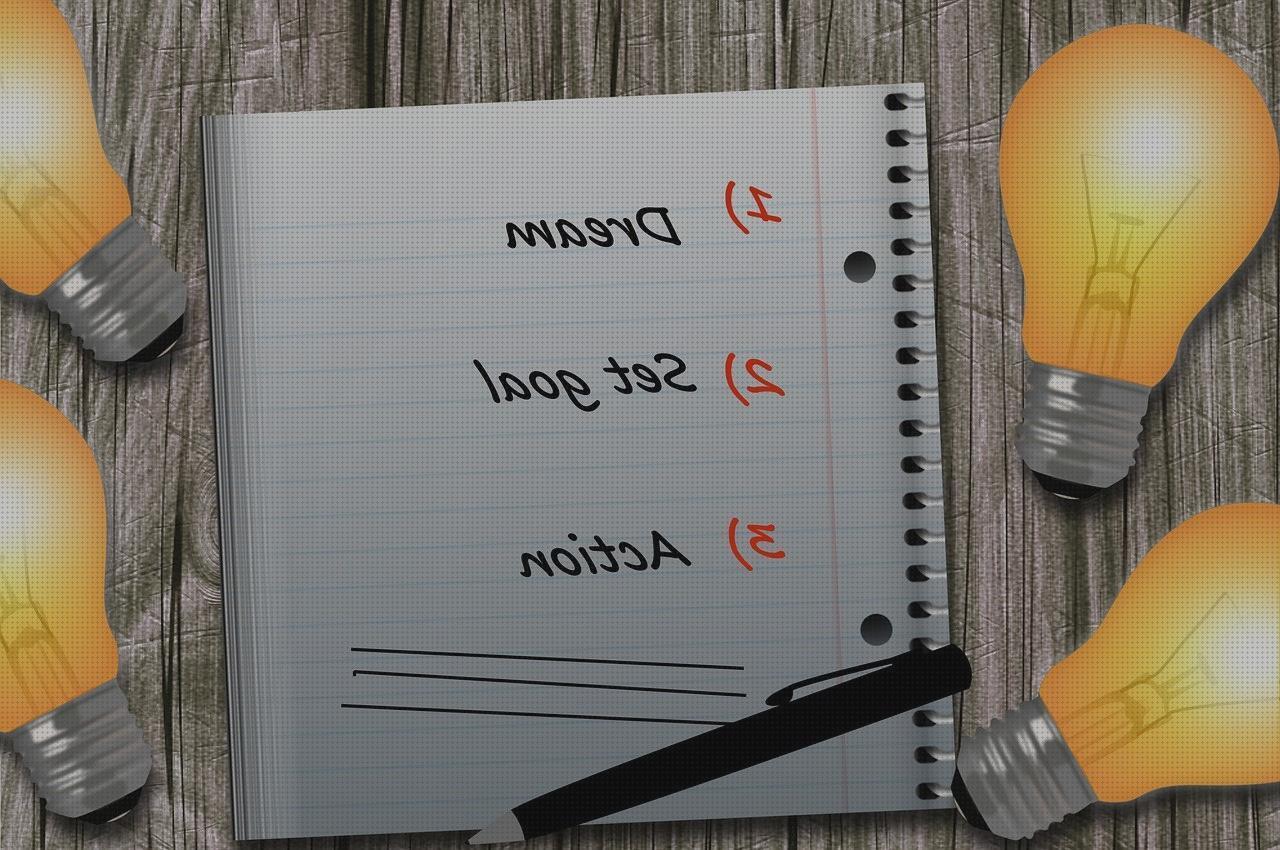 1) Dream
2) Set goal
3) Action